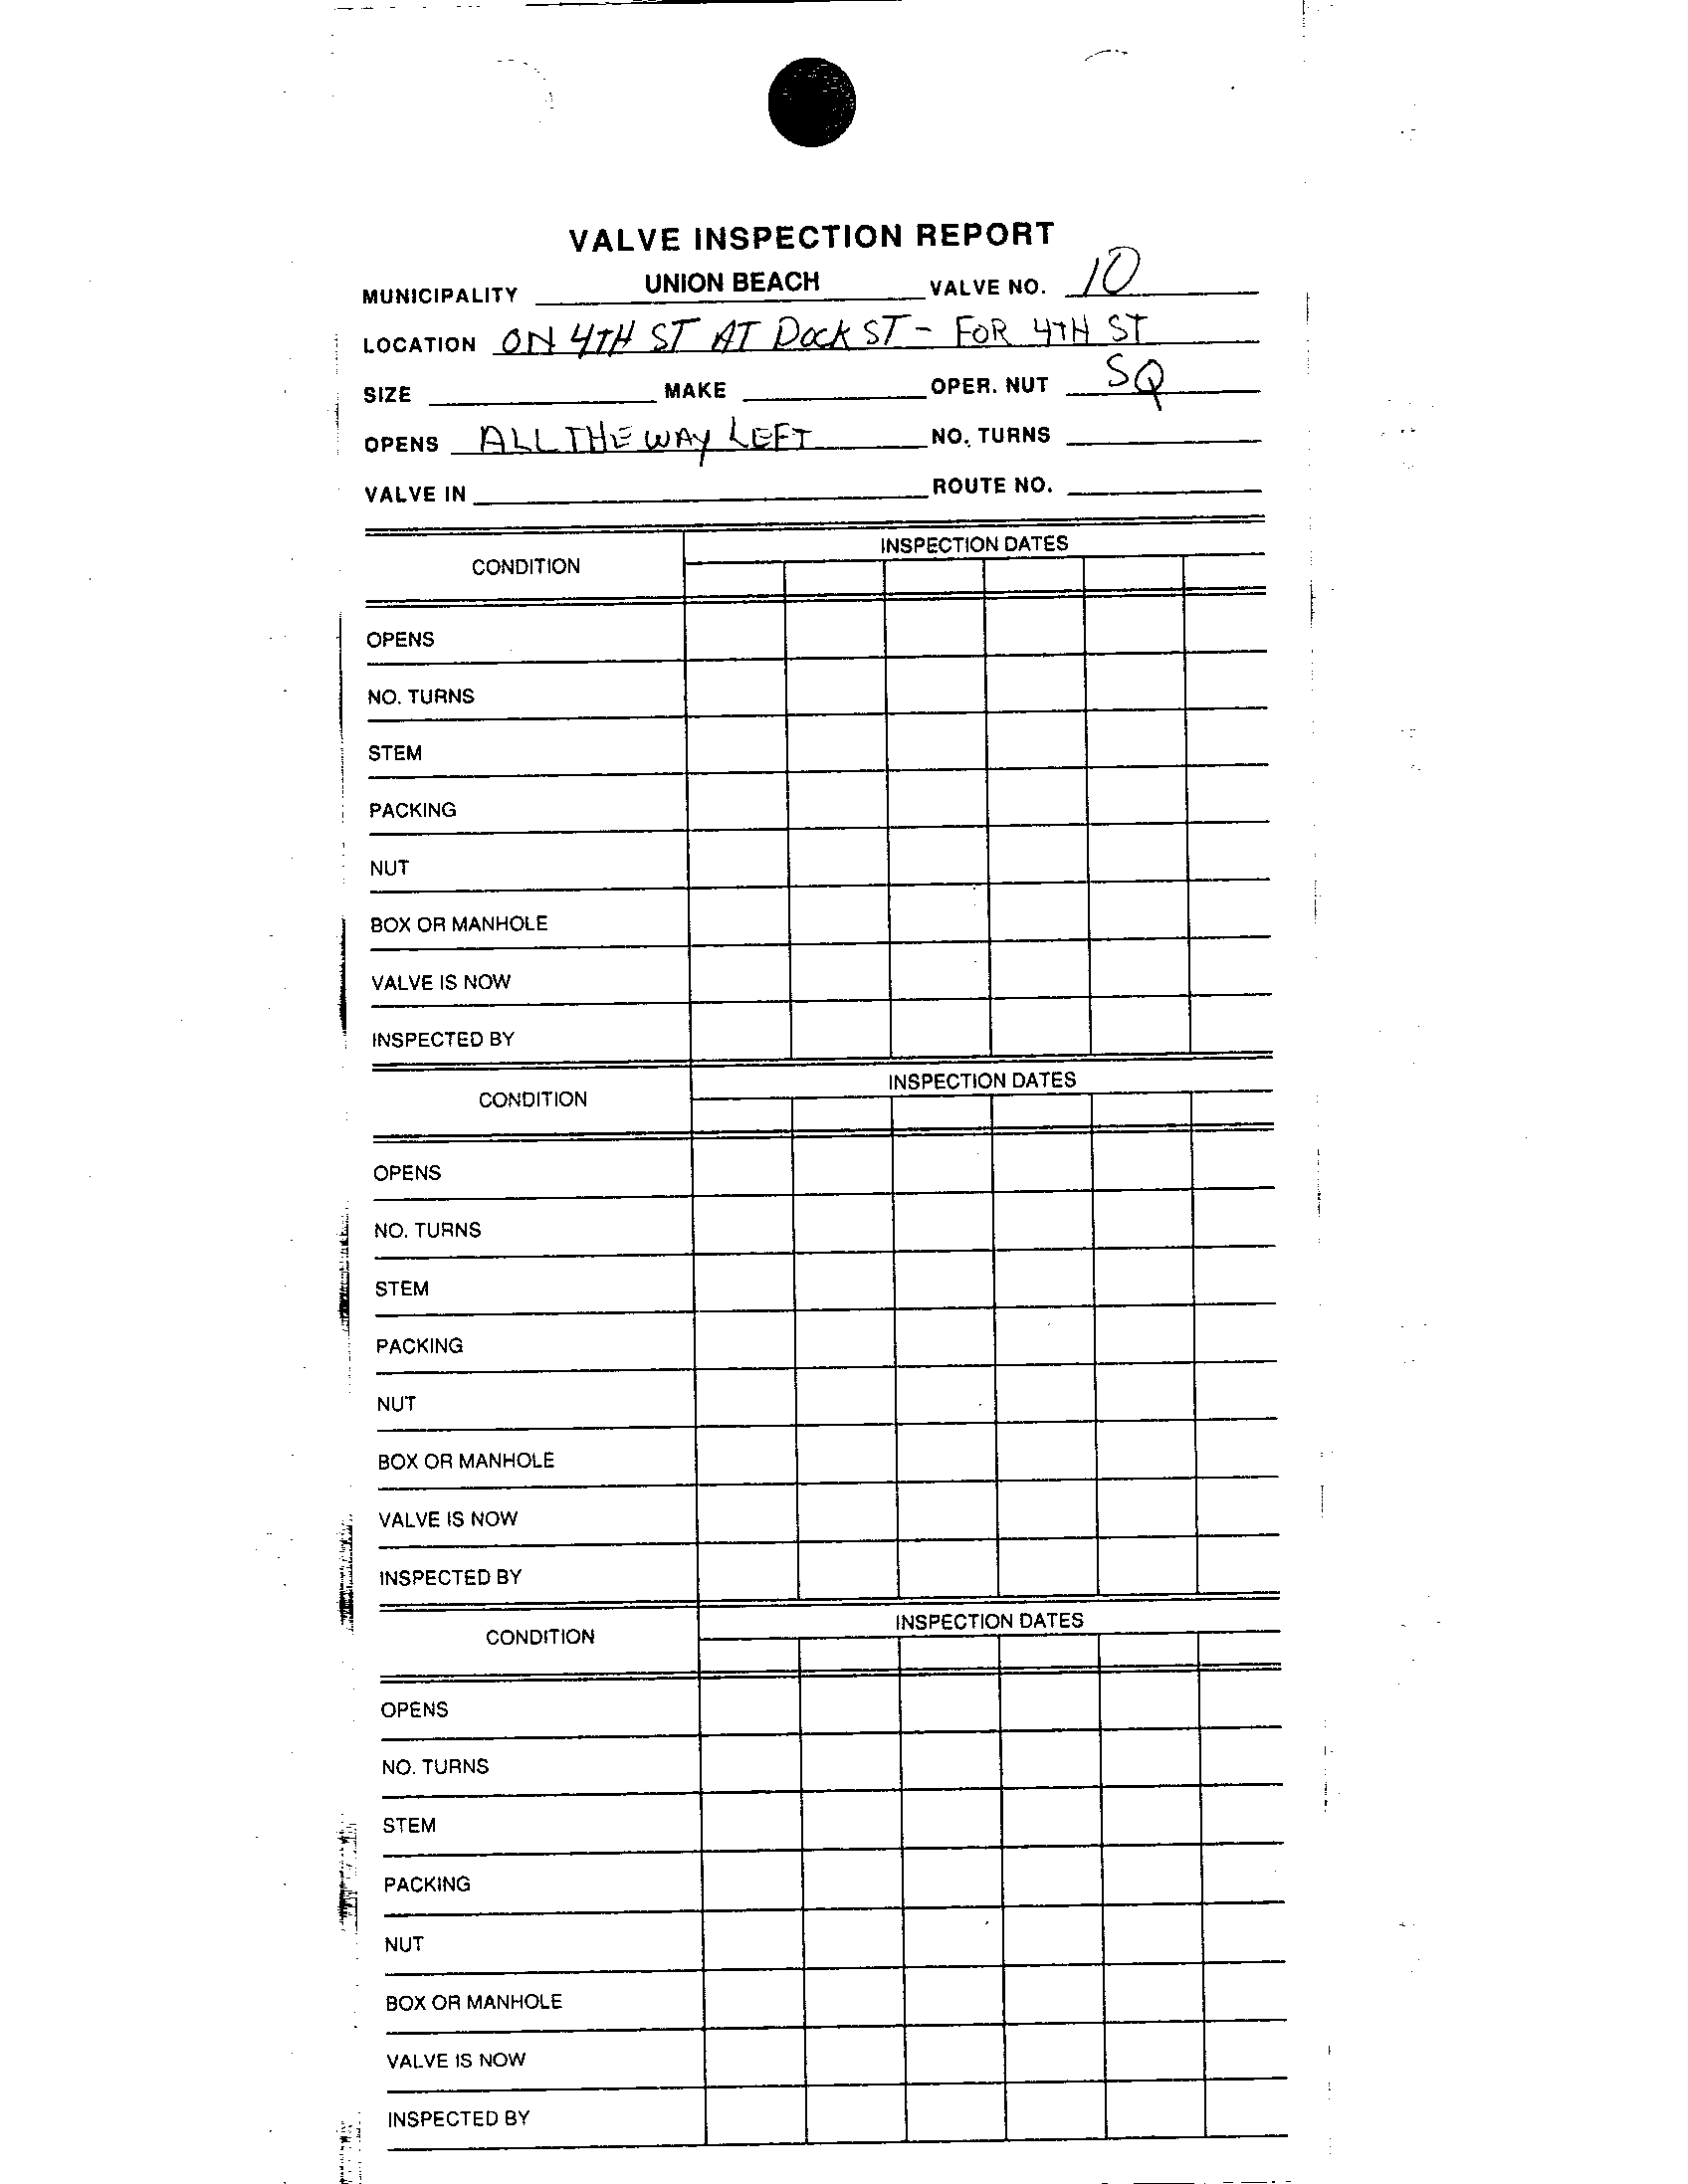 VALVE INSPECTION REPORT
MUNICIPALITY UNION BEACH VALVE NO. 10
LOCATION ON 4TH ST AT DOCK ST - FOR 4TH ST
SIZE MAKE OPER. NUT SQ
OPENS ALL THE WAY LEFT NO. TURNS
VALVE IN ROUTE NO.
CONDITION INSPECTION DATES
OPENS
NO. TURNS
STEM
PACKING
NUT
BOX OR MANHOLE
VALVE IS NOW
INSPECTED BY
CONDITION INSPECTION DATES
OPENS
NO. TURNS
STEM
PACKING
NUT
BOX OR MANHOLE
VALVE IS NOW
INSPECTED BY
CONDITION INSPECTION DATES
OPENS
NO. TURNS
STEM
PACKING
NUT
BOX OR MANHOLE
VALVE IS NOW
INSPECTED BY